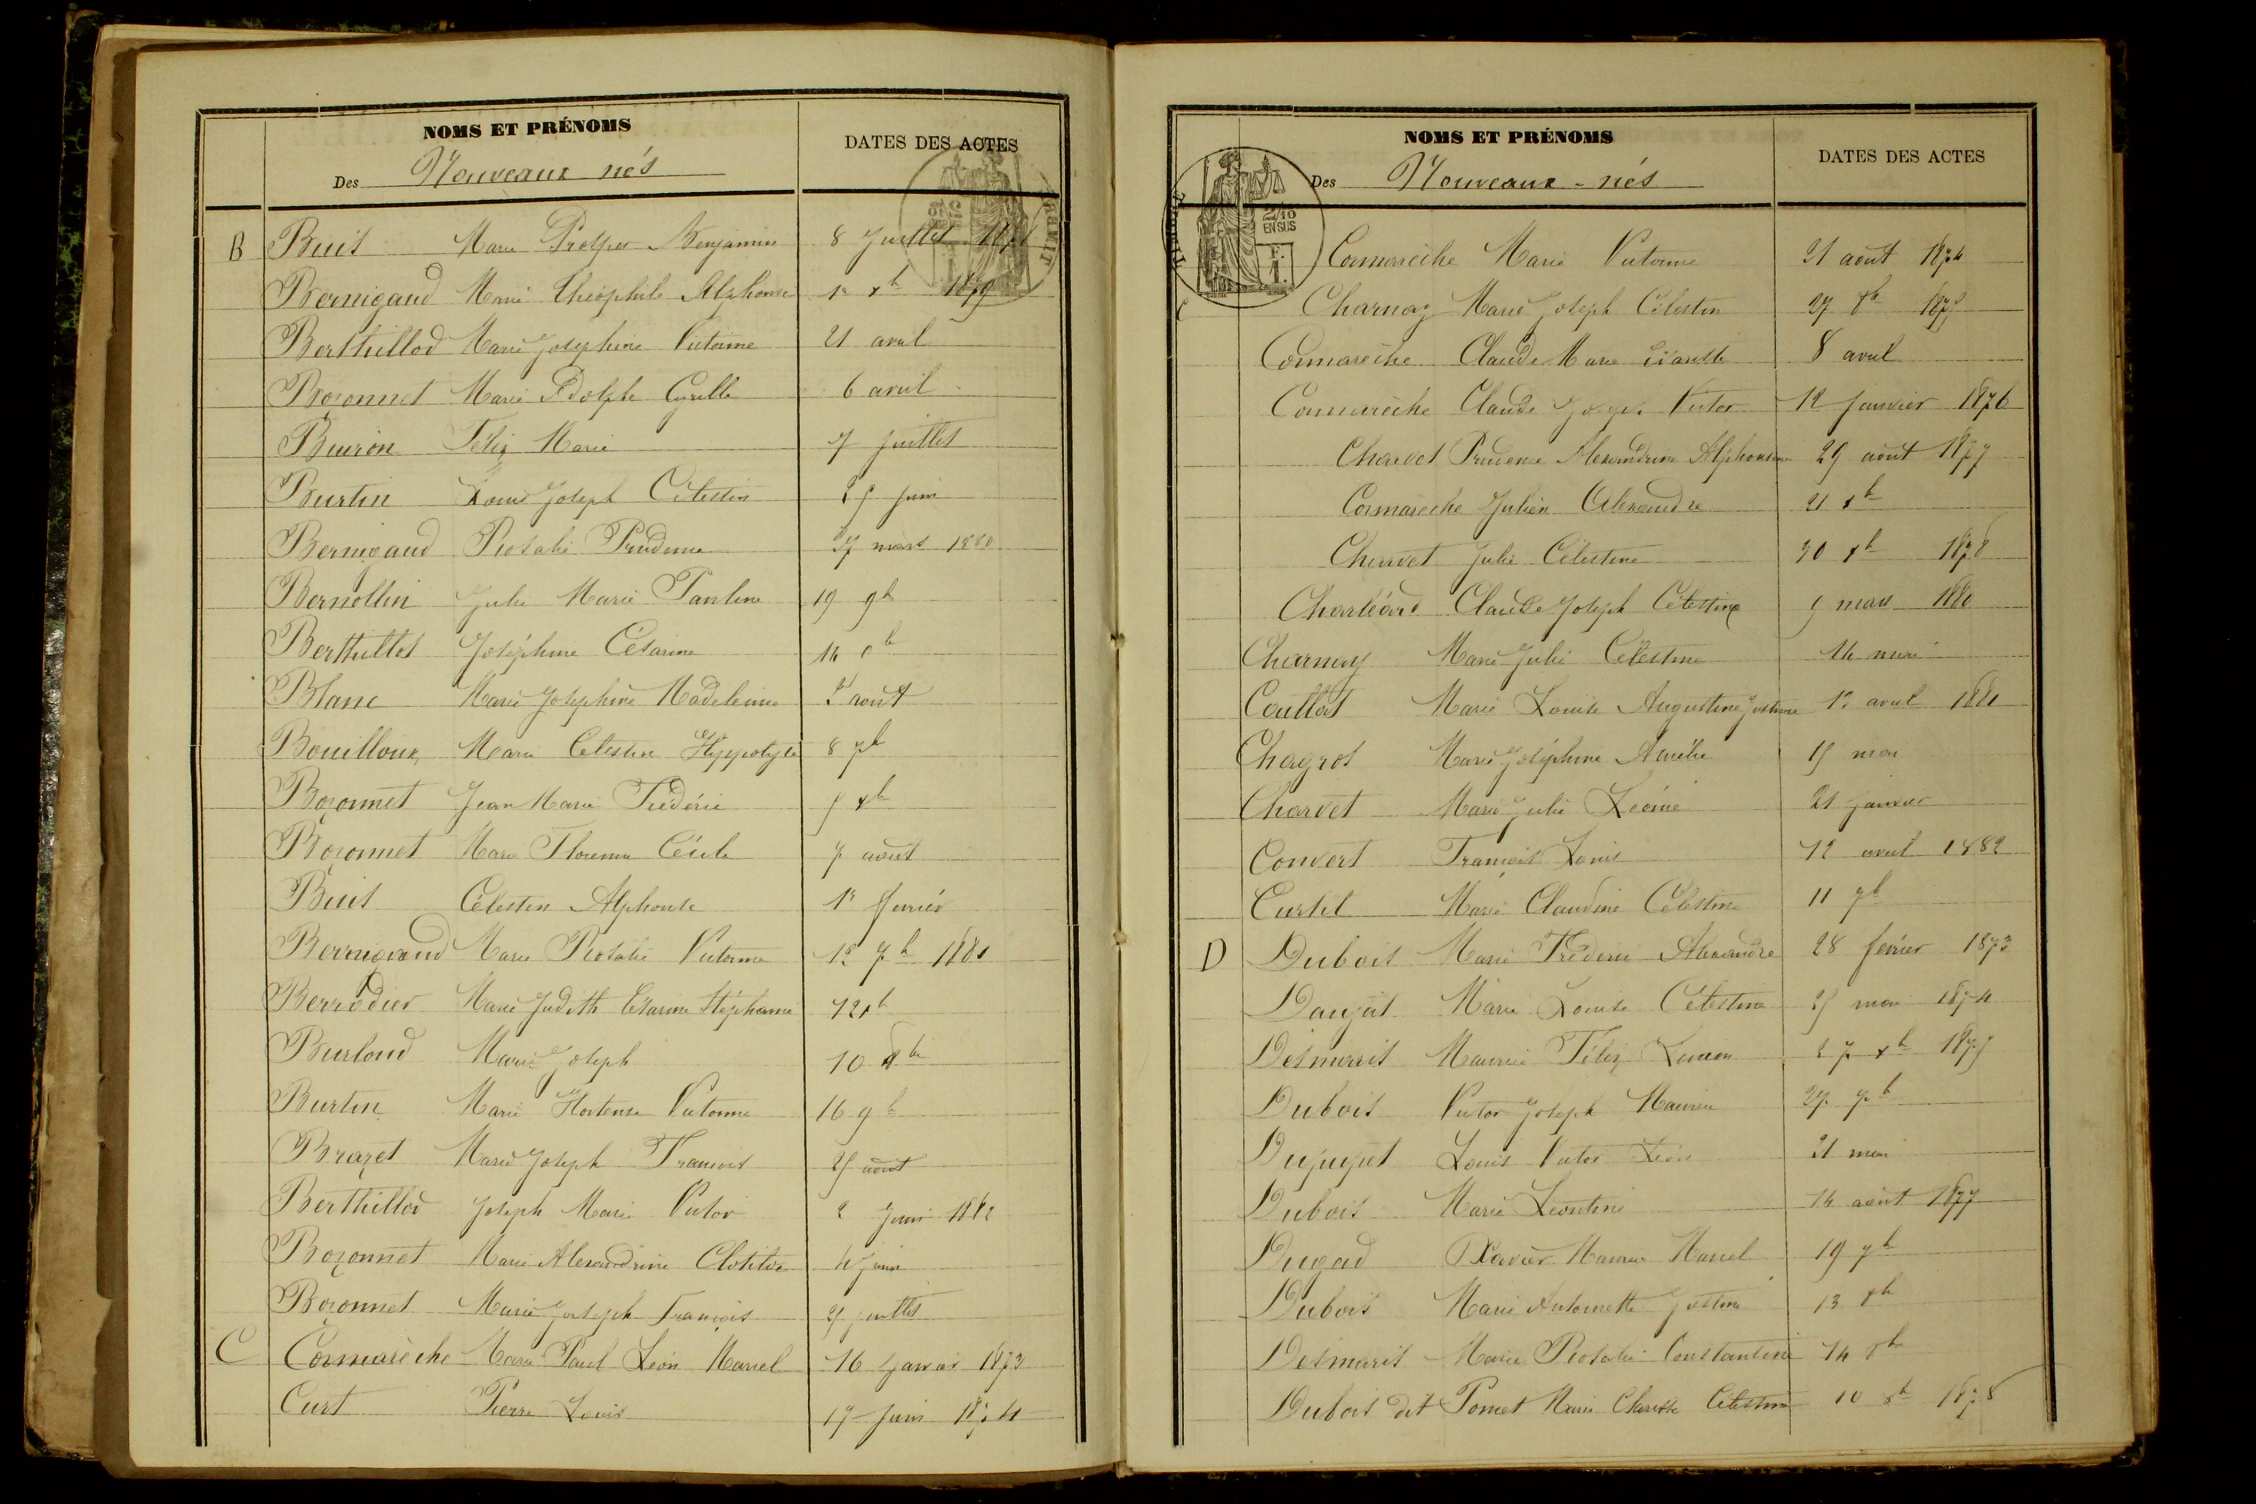 NOMS ET PRÉNOMS
Des Nouveaux nés
DATES DES ACTES
B Buit Marie Prosper Benjamin 8 Juillet 1878
Bernigaud Marie Théophile Alphonse 1r xb 1879
Berthillod Marie Joséphine Victorine 21 avril
Boçonnet Marie Adolphe Cyrille 6 avril
Buiron Félix Marie 7 Juillet
Burtin Louis Joseph Célestin 25 Juin
Bernigaud Rosalie Prudence 27 mars 1880
Bernollin Julie Marie Pauline 19 9b
Berthillet Joséphine Césarine 14 8b
Blanc Marie Joséphine Madeleine 2 août
Bouilloux Marie Célestin Hyppolyte 8 7b
Boçonnet Jean Marie Fréderic 5 xb
Boçonnet Marie Florence Cécile 7 août
Buit Célestin Alphonse 1r février
Bernigaud Marie Rosalie Victorine 12 7b 1881
Berrodier Marie Judith Césarine Stéphanie 12 xb
Burloud Marie Joseph 10 xbr
Burtin Marie Hortense Victorine 16 9b
Brazet Marie Joseph François 25 août
Berthillod Joseph Marie Victor 2 Juin 1882
Boçonnet Marie Alexandrine Clotilde 4 Juin
Boçonnet Marie Joseph François 25 juillet
C Cormarèche Marie Paul Léon Marcel 16 Janvier 1873
Curt Pierre Louis 17 Juin 1874
NOMS ET PRÉNOMS
Des Nouveaux-nés
DATES DES ACTES
2/10
EN SUS
Cormarèche Marie Victorine 21 août 1874
C Charnay Marie Joseph Célestin 27 8b 1875
Cormarèche Claude Marie 8 avril
Cormarèche Claude Joseph Victor 12 Janvier 1876
Charvet Prudence Alexandrine Alphonsine 29 août 1877
Cormarèche Julien Alexandre 21 xb
Charvet Julie Célestine 30 xb 1878
Charléard Claude Joseph Célestine 5 mars 1880
Charnay Marie Julie Célestine 14 mai
Coullod Marie Louise Augustine Justine 12 avril 1881
Chagrot Marie Joséphine Aurélie 15 mai
Charvet Marie Julie Léonie 21 Janvier
Convert François Louis 12 avril 1882
Curtel Marie Claudine Célestine 11 7b
D Dubois Marie Fréderic Alexandre 28 février 1873
Daujat Marie Louise Célestine 25 mai 1874
Desmaris Maurice Félix Lucien 27 xb 1875
Dubois Victor Joseph Maurice 27 9b
Dupupet Louis Victor Léon 21 mai
Dubois Marie Léontine 14 août 1877
Dugad Xavier Maurice Marcel 19 7b
Dubois Marie Antoinette Justine 13 xb
Desmaris Marie Rosalie Constantine 14 8b
Dubois dit Pomet Marie Clarisse Célestine 10 8b 1878